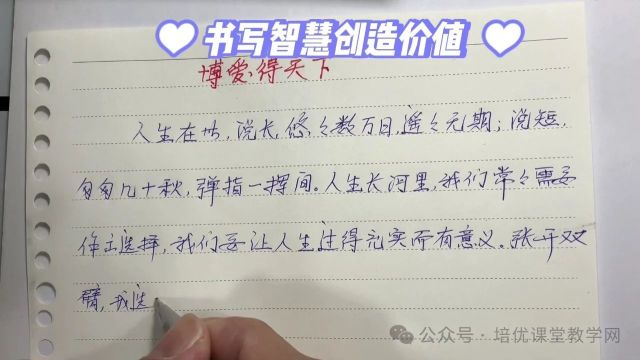 书写智慧创造价值
博爱得天下
人生在世,说长,悠々数万日,遥々无期;说短,
匆匆几十秋,弹指一挥间。人生长河里,我们常々需要
作出选择,我们要让人生过得充实而有意义。张开双
臂,我选
公众号·培优课堂教学网